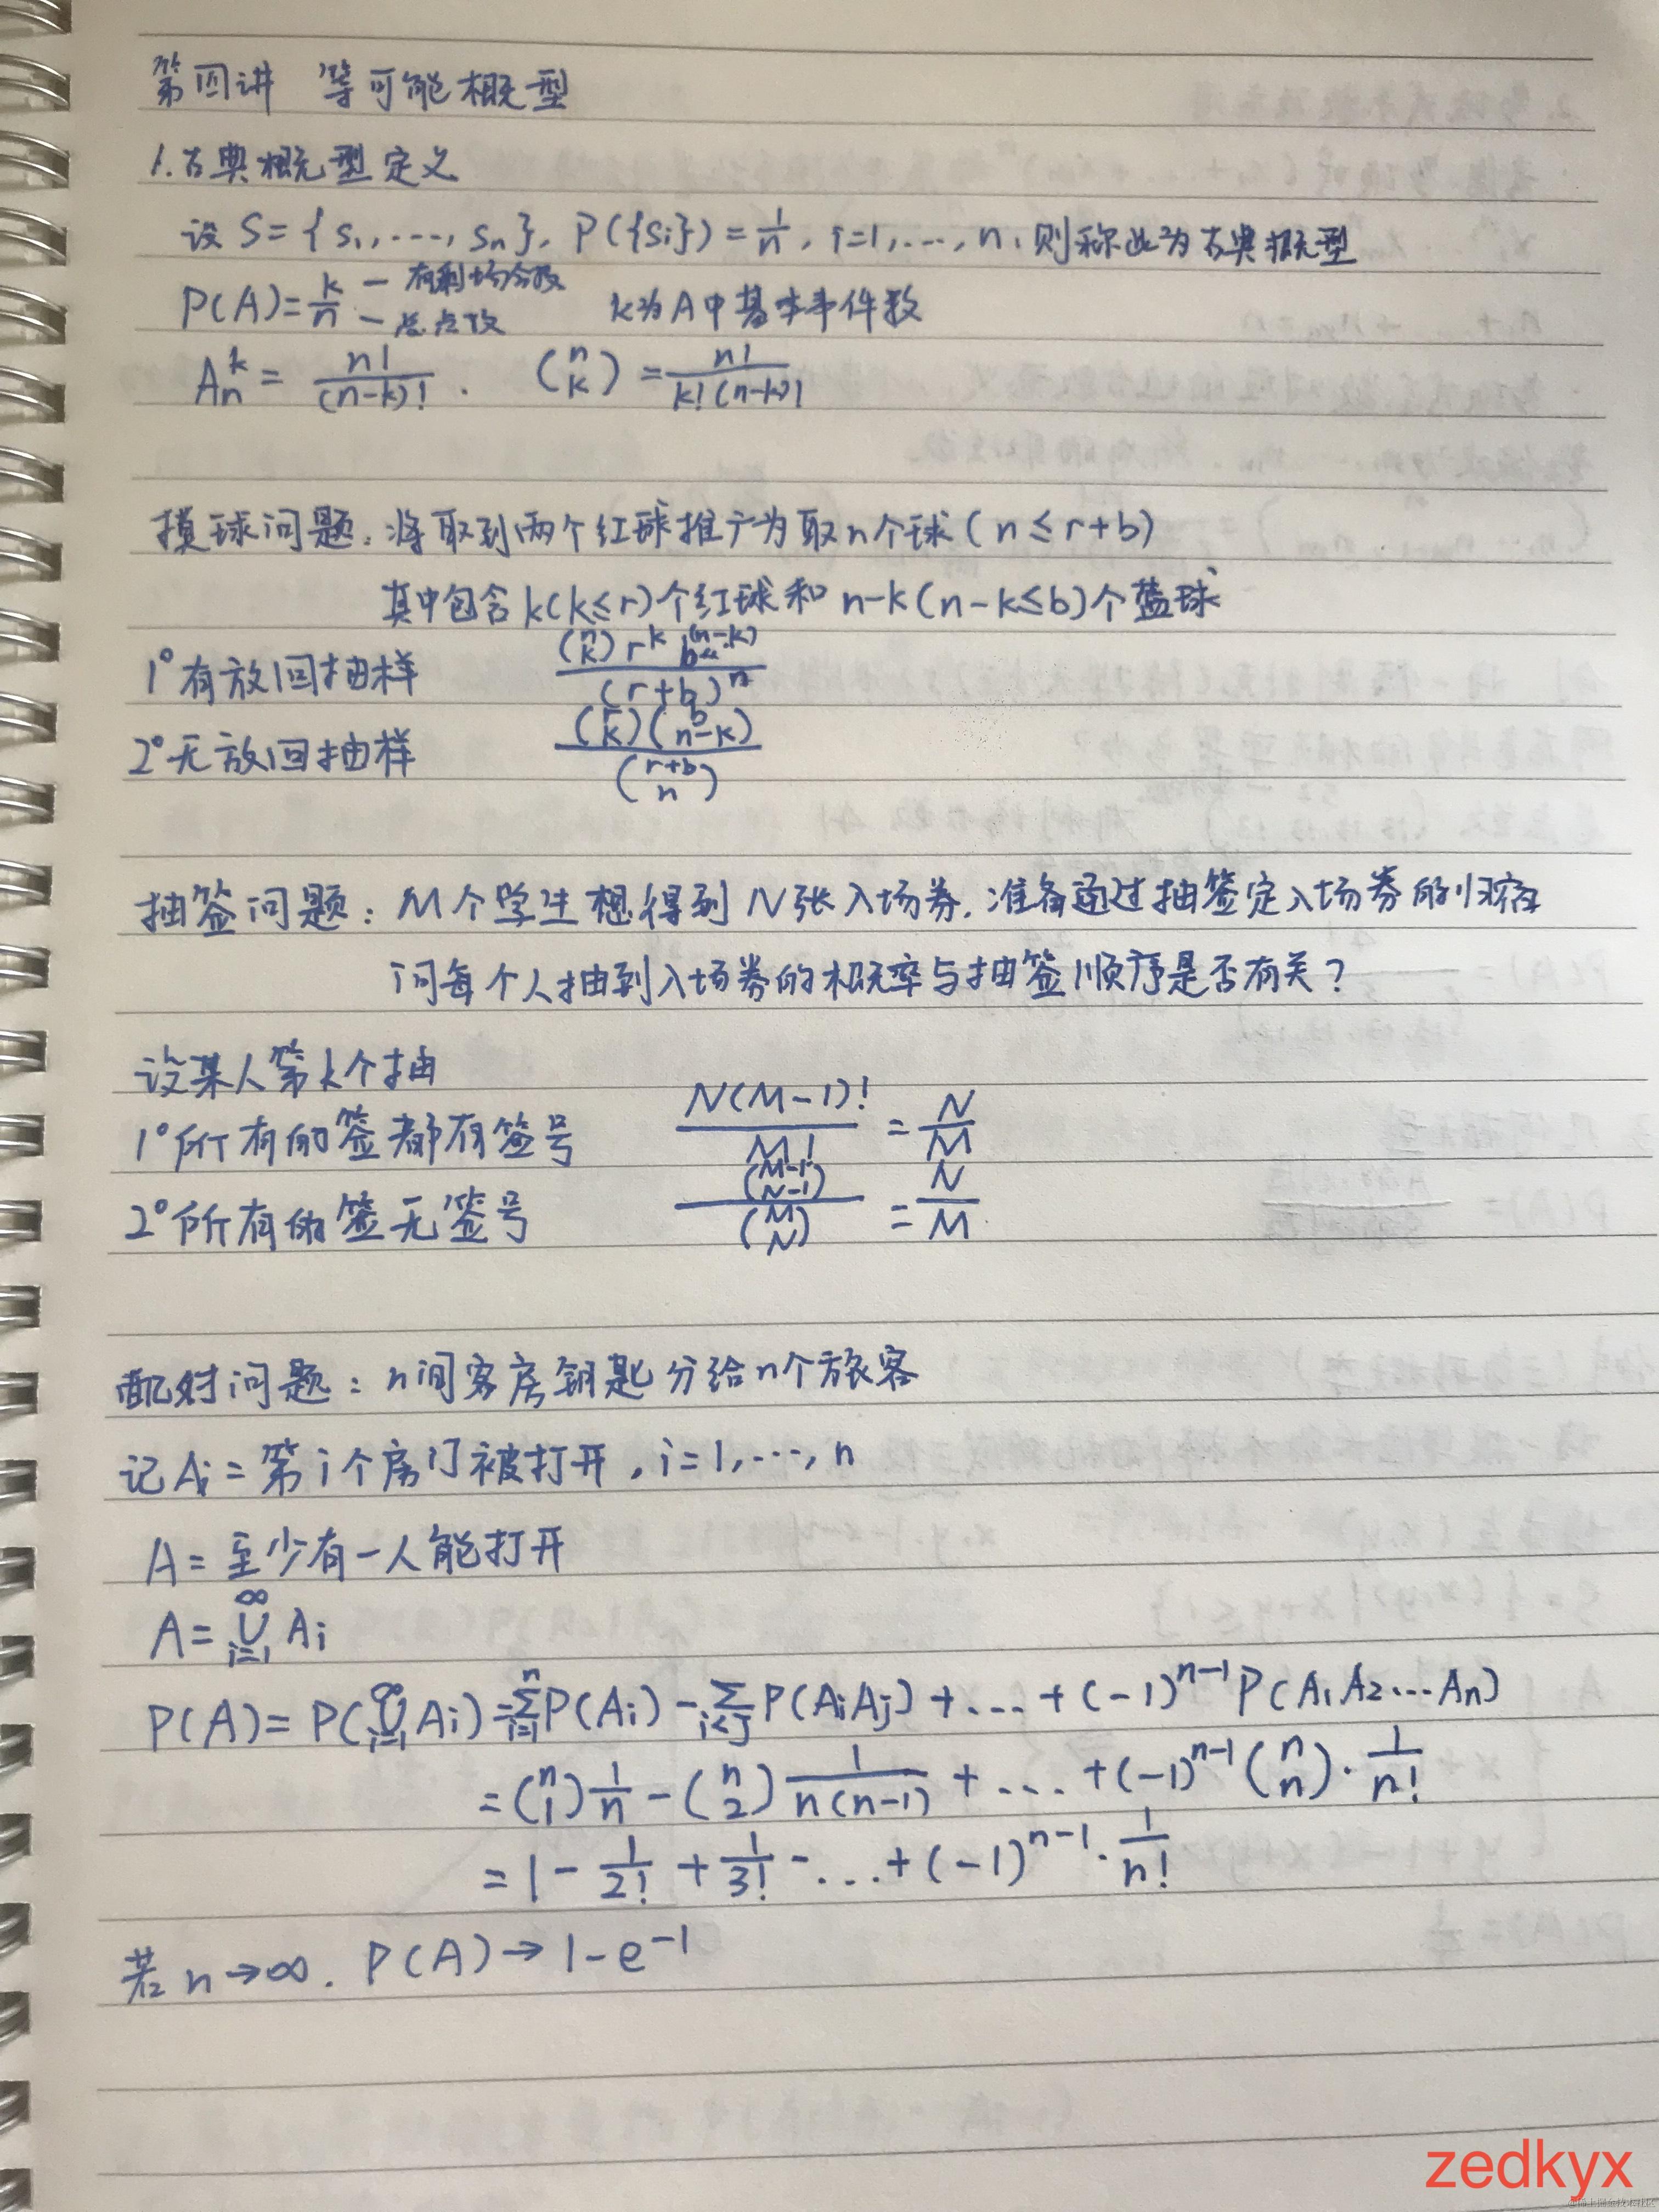 第四讲 等可能概型
1.古典概型定义
设 S={s₁,...,sₙ}, P({sᵢ})=1/n, i=1,...,n, 则称此为古典概型
P(A)=k/n — 有利场合数 — 总点数 k为A中基本事件数
Aₙᵏ = n!/(n-k)! . (n k) = n!/k!(n-k)!
摸球问题: 将取到两个红球推广为取n个球(n≤r+b)
其中包含k(k≤r)个红球和n-k(n-k≤b)个蓝球
1°有放回抽样 (n k) rᵏ b⁽ⁿ⁻ᵏ⁾/(r+b)ⁿ
2°无放回抽样 (r k)(b n-k)/(r+b n)
抽签问题: M个学生想得到N张入场券, 准备通过抽签定入场券的归宿
问每个人抽到入场券的概率与抽签顺序是否有关?
设某人第k个抽
1°所有的签都有签号 N(M-1)!/M! = N/M
2°所有的签无签号 (M-1 N-1)/(M N) = N/M
配对问题: n间客房钥匙分给n个旅客
记Aᵢ=第i个房门被打开, i=1,...,n
A=至少有一人能打开
A=∞∪i=1 Aᵢ
P(A)=P(∞∪i=1 Aᵢ)=n∑i=1 P(Aᵢ)-∑i<j P(AᵢAⱼ)+...+(-1)ⁿ⁻¹P(A₁A₂...Aₙ)
=(n 1)1/n-(n 2)1/n(n-1)+...+(-1)ⁿ⁻¹(n n)·1/n!
=1-1/2!+1/3!-...+(-1)ⁿ⁻¹·1/n!
若n→∞. P(A)→1-e⁻¹
zedkyx